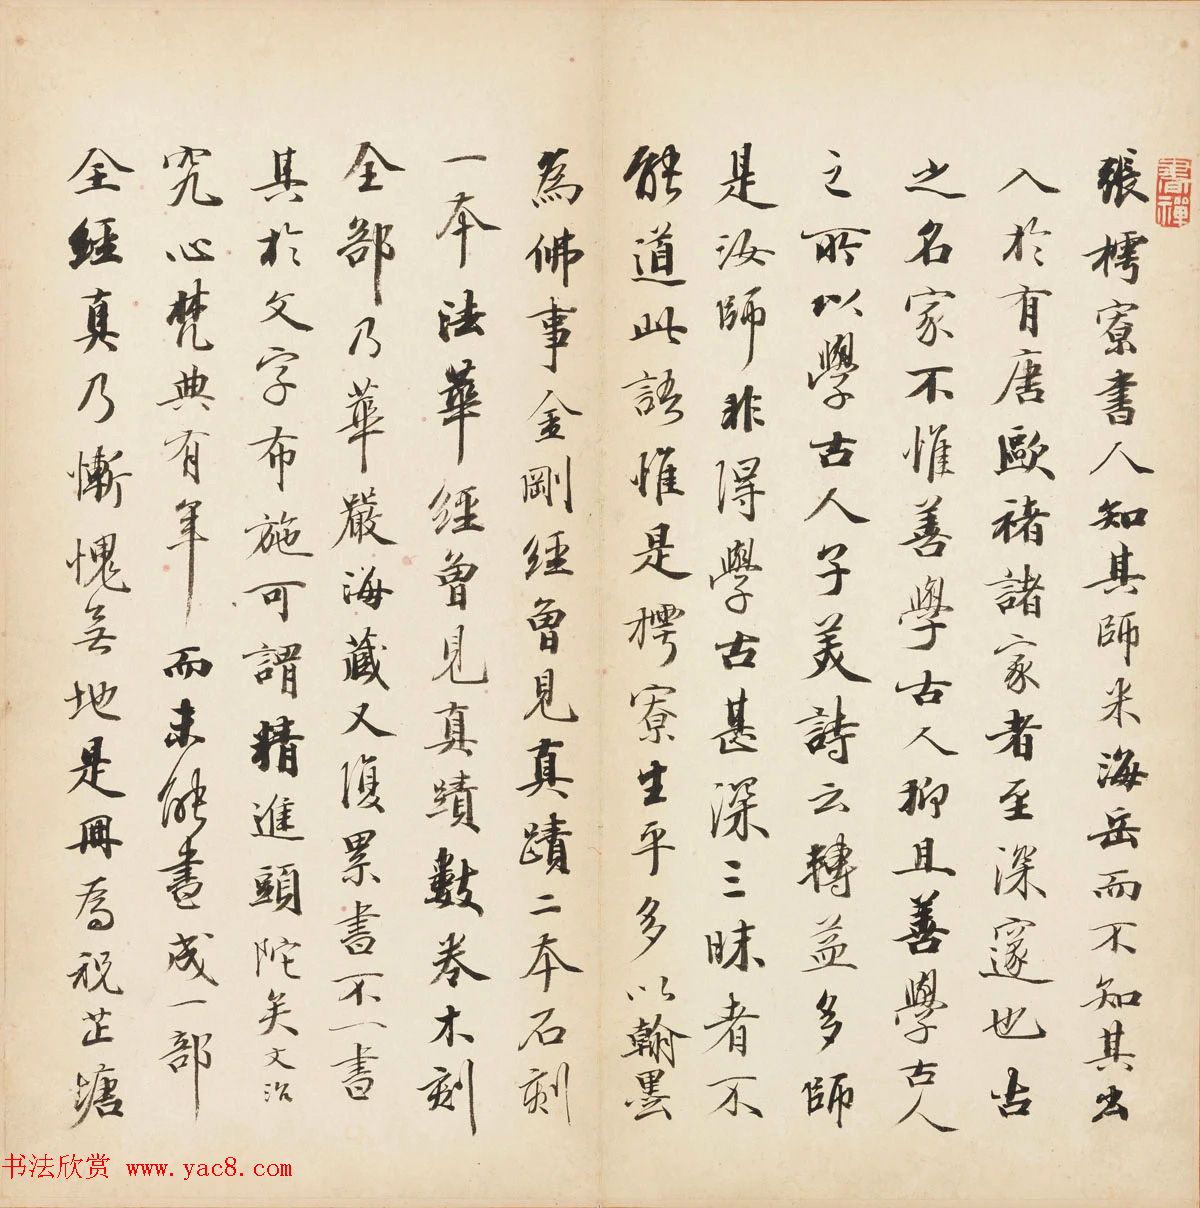 書禪
張樗寮書人知其師米海岳而不知其出
入於有唐歐褚諸家者至深邃也古
之名家不惟善學古人抑且善學古人
之所以學古人子美詩云轉益多師
是汝師非得學古甚深三昧者不
能道此語惟是樗寮生平多以翰墨
為佛事金剛經曾見真蹟二本石刻
一本法華經曾見真蹟數卷木刻
全部乃華嚴海藏又復累書不一書
其於文字布施可謂精進頭陀矣文治
究心梵典有年而未能書成一部
全經真乃慚愧無地是冊為祝芷塘
书法欣赏 www.yac8.com